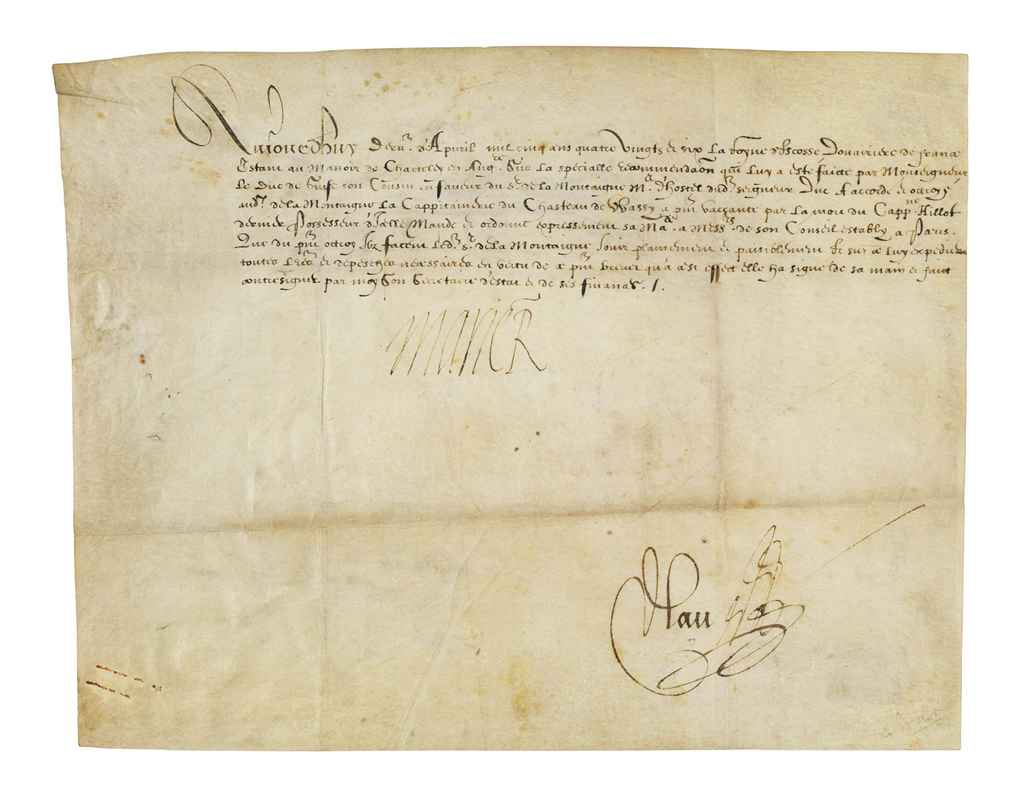 Aujourdhuy dern. d'Apuril mil cinq cens quatre vingts et six La Royne d'Escosse Douairiere de france
Estant au Manoir de Chartley en Ang.re Sur La specialle recommendaon qui Luy a esté faicte par Monseigneur
Le Duc de Guise son Cousin en faveur du s.r de la Montaigne M.e d'hostel dud. seigneur Duc A accordé et octroyé
aud. de la Montaigne La Cappitainerie du Chasteau de Wassy a pnt vaccante par la mort du Capp.ne Hillot
dernier Possesseur d'Icelle Mande et ordonne expressement sa Ma.té a Mess.rs de son Conseil estably a Paris.
Que du pnt octroy Ilz facent led. s.r de la Montaigne Jouir plainement et paisiblement Et sur ce Luy expedient
toutes Lres et depesches necessaires en vertu de ce pnt brevet qu'a cest effect elle ha signé de sa main et faict
contresigner par moy Son Secretaire d'estat et de ses finances.
MARIE R
Nau